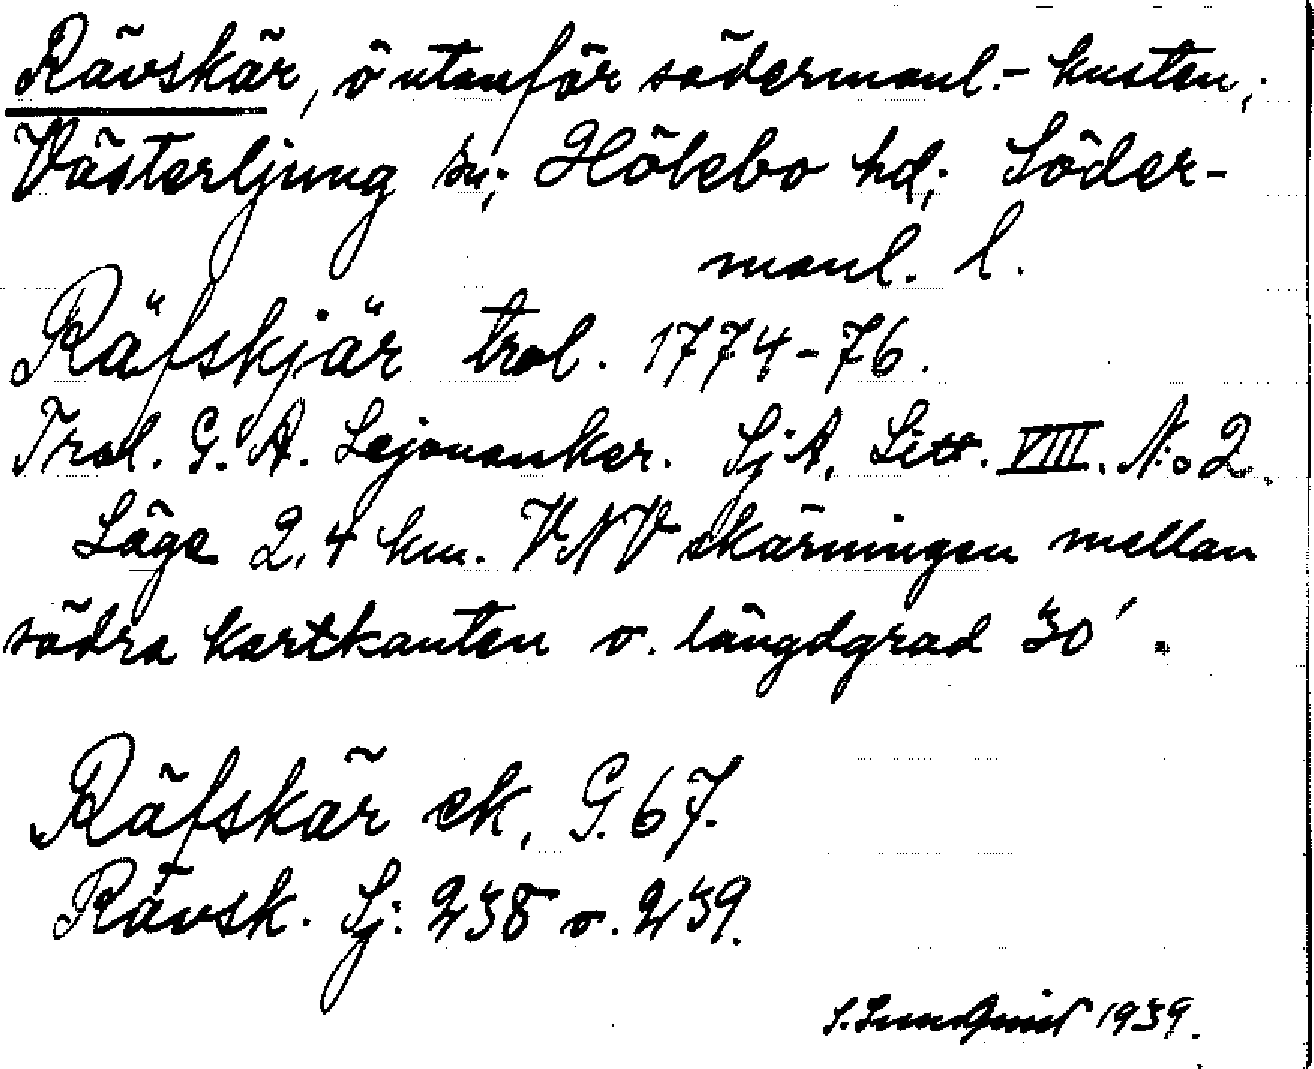 Rävskär, ö utanför södermanl.-kusten;
Västerljung sn; Hölebo hd; Söder-
manl. l.
Räfskjär trol. 1774-76.
Trol. G. A. Lejonanker. SjA. Litt. VIII. N:o 2.
Läge 2,4 km. VNV skärningen mellan
södra kartkanten o. längdgrad 30'.
Räfskär ek. G. 67.
Rävsk. Sj: 238 o. 239.
S. Lundqvist 1939.